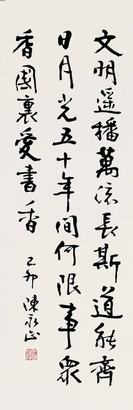 文明遥播萬流長斯道能齊
日月光五十年間何限事衆
香園裏愛書香
己卯 陳永正